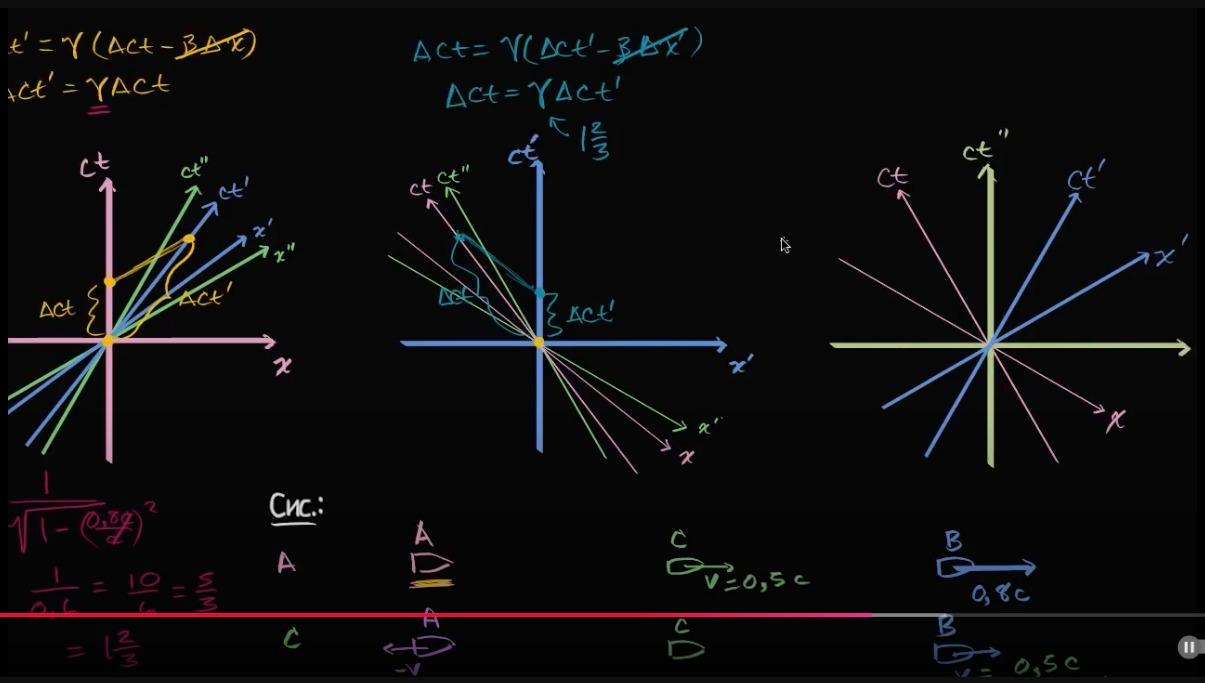 t' = γ (Δct - βΔx)
Δct' = γΔct
Δct = γ(Δct' - βΔx')
Δct = γΔct'
1 2/3
ct
ct''
ct'
x'
x''
Δct
Δct'
x
ct'
ct
ct''
Δct
Δct'
x'
x''
x
ct''
ct
ct'
x'
x
1
√1 - (0,8c/c)²
1/0,6 = 10/6 = 5/3
= 1 2/3
Сис.:
A
A
C
V = 0,5 c
B
0,8c
C
A
-V
C
B
V = 0,5c